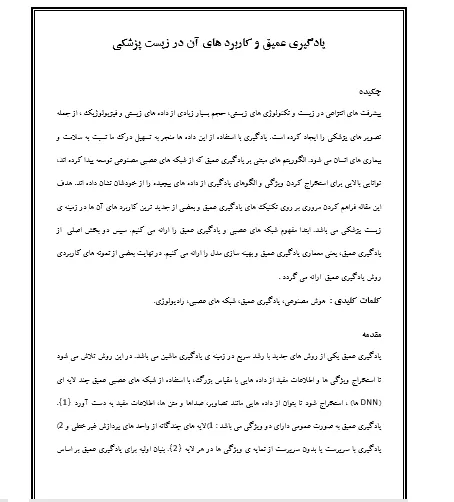 یادگیری عمیق و کاربرد های آن در زیست پزشکی
چکیده
پیشرفت های انتزاعی در زیست و تکنولوژی های زیستی، حجم بسیار زیادی از داده های زیستی و فیزیولوژیک ، از جمله
تصویر های پزشکی را ایجاد کرده است. یادگیری با استفاده از این داده ها منجر به تسهیل درک ما نسبت به سلامت و
بیماری های انسان می شود. الگوریتم های مبتنی بر یادگیری عمیق که از شبکه های عصبی مصنوعی توسعه پیدا کرده اند،
توانایی بالایی برای استخراج کردن ویژگی و الگوهای یادگیری از داده های پیچیده را از خودشان نشان داده اند. هدف
این مقاله فراهم کردن مروری بر روی تکنیک های یادگیری عمیق و بعضی از جدید ترین کاربرد های آن ها در زمینه ی
زیست پزشکی می باشد. ابتدا مفهوم شبکه های عصبی و یادگیری عمیق را ارائه می کنیم. سپس دو بخش اصلی از
یادگیری عمیق، یعنی معماری یادگیری عمیق و بهینه سازی مدل را ارائه می کنیم. در نهایت بعضی از نمونه های کاربردی
روش یادگیری عمیق ارائه می گردد .
کلمات کلیدی : هوش مصنوعی، یادگیری عمیق، شبکه های عصبی، رادیولوژی.
مقدمه
یادگیری عمیق یکی از روش های جدید با رشد سریع در زمینه ی یادگیری ماشین می باشد. در این روش تلاش می شود
تا استخراج ویژگی ها و اطلاعات مفید از داده هایی با مقیاس بزرگ، با استفاده از شبکه های عصبی عمیق چند لایه ای
(DNN ها) ، استخراج شود تا بتوان از داده هایی مانند تصاویر، صداها و متن ها، اطلاعات مفید به دست آورد {1}.
یادگیری عمیق به صورت عمومی دارای دو ویژگی می باشد : 1)لایه های چندگانه از واحد های پردازش غیر خطی و 2)
یادگیری با سرپرست یا بدون سرپرست از نمایه ی ویژگی ها در هر لایه {2}. بنیان اولیه برای یادگیری عمیق بر اساس